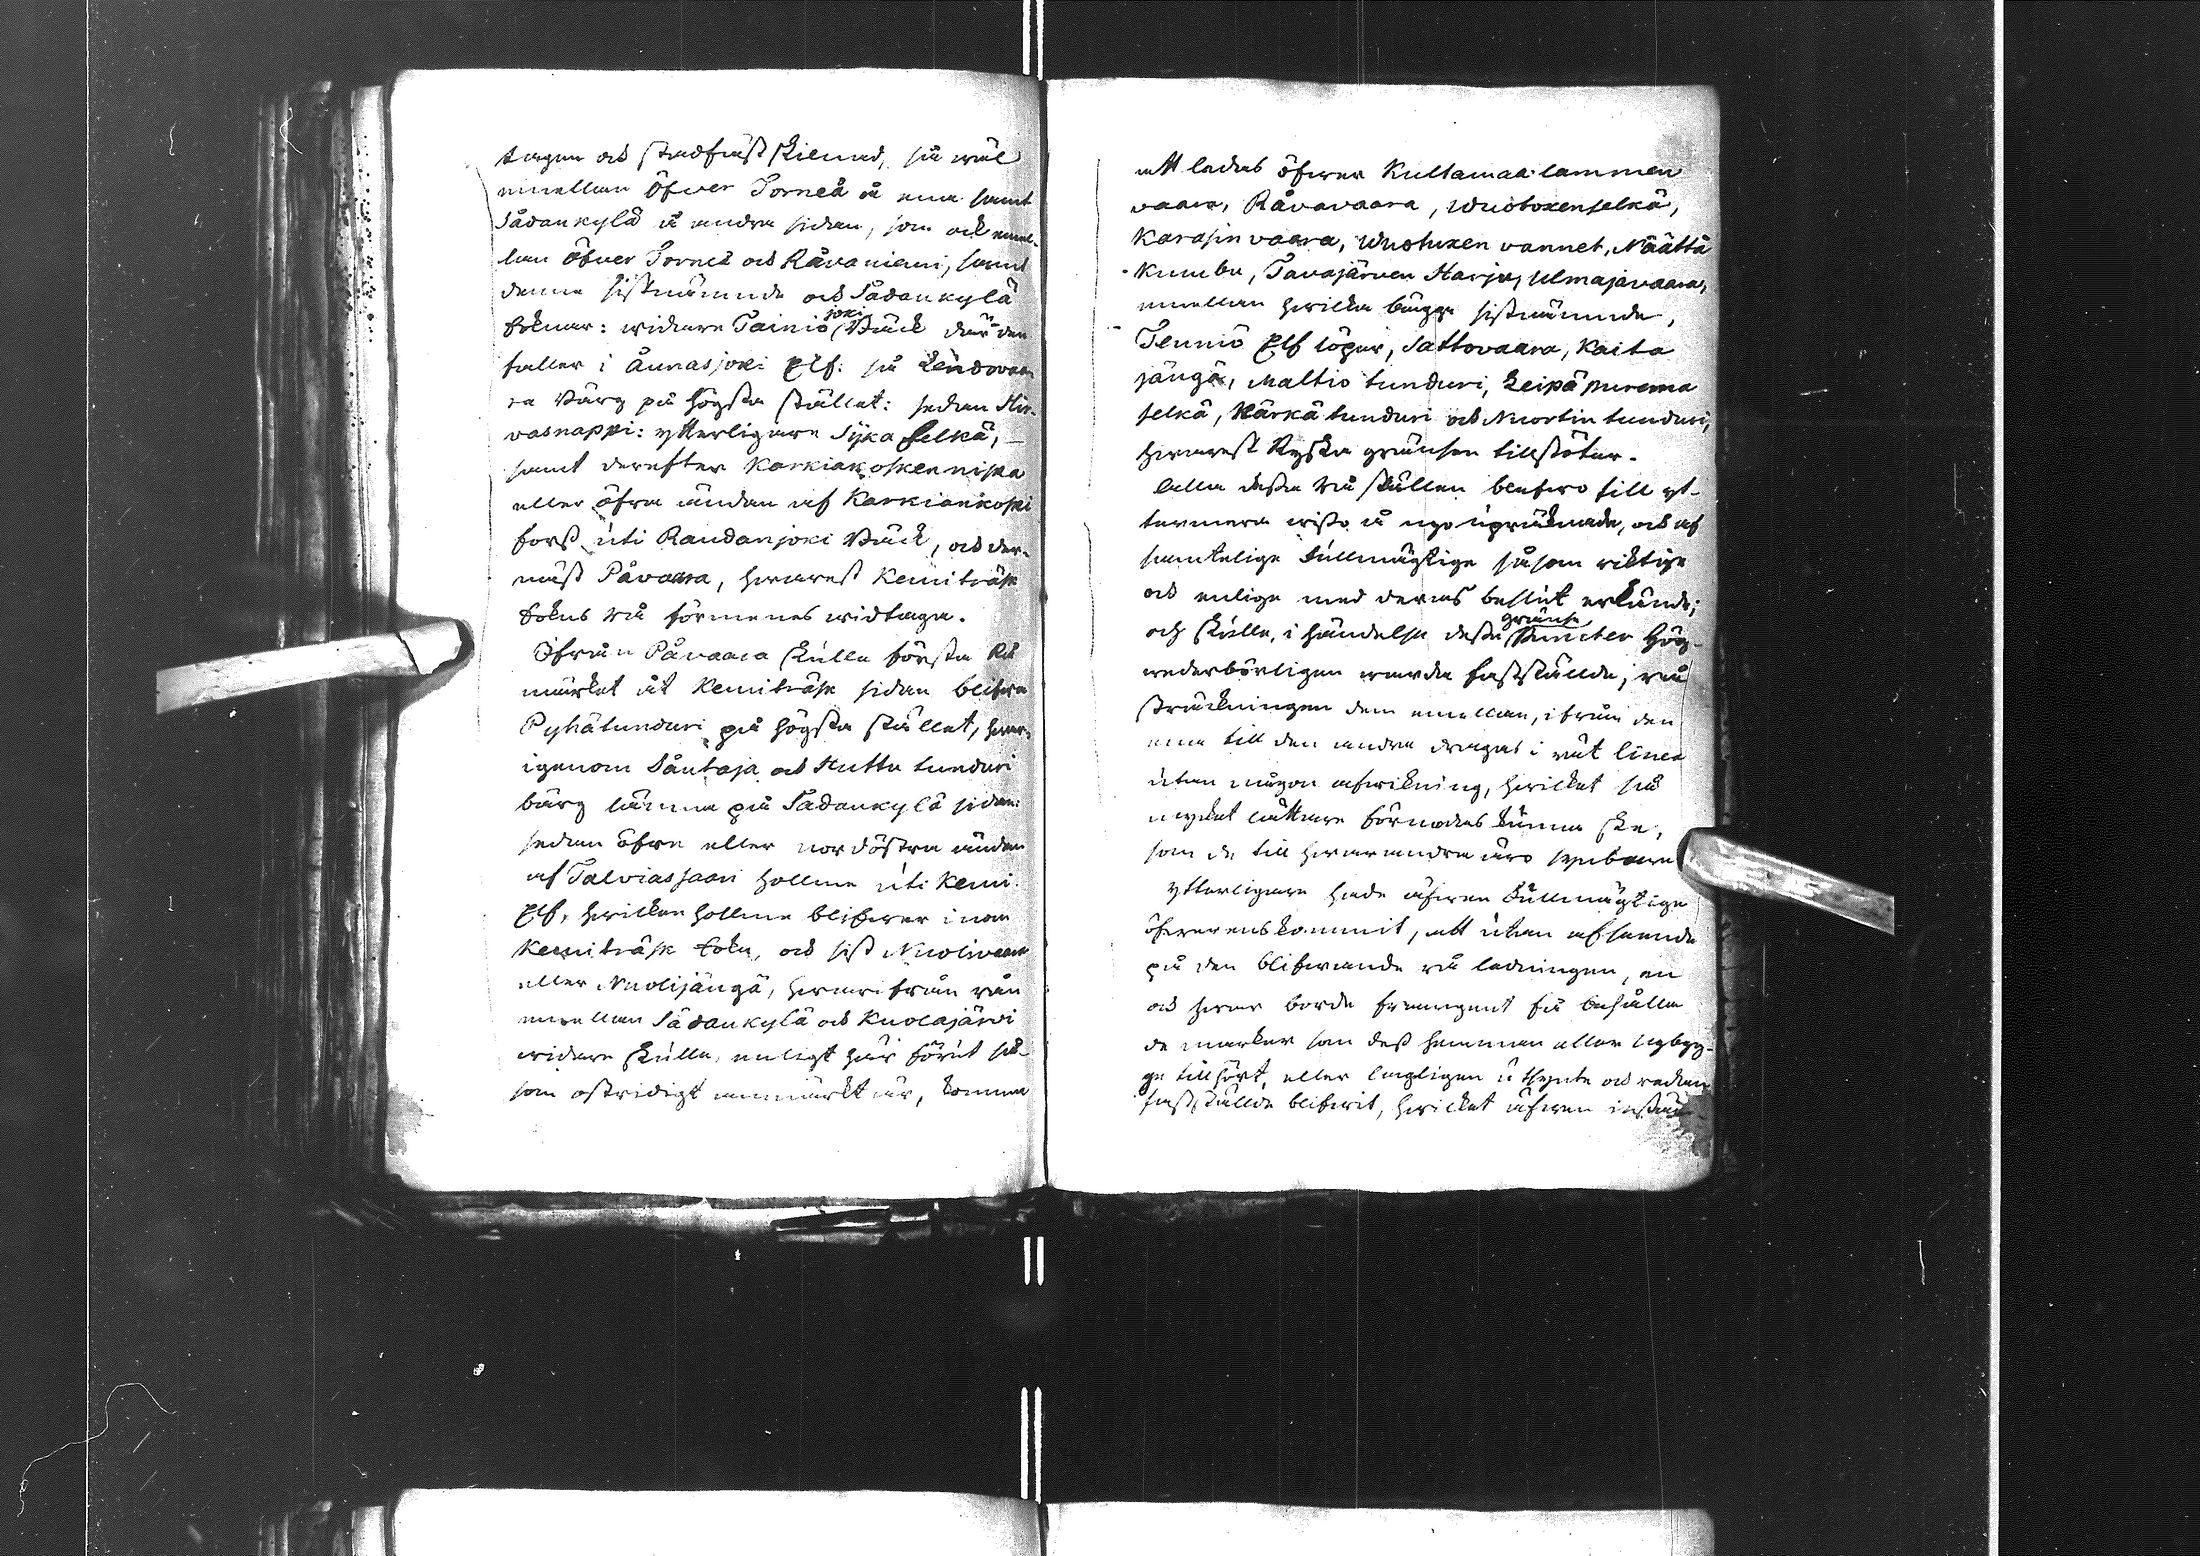 tagen och stadfäst skilnad, så wäl
emellan Öfver Torneå å ena samt
Sådankylä å andra sidan, som ock emel-
lan Öfver Torneå och Råvaniemi, samt
denne sistnämnde och Sådankylä
soknar: widare Tainiö joki Bäck där den
faller i Aunasjoki Elf: på Lendovaa
ra Bärg på högsta stället: sedan Hir-
vasnappi: ytterligare Syka Selkä,
samt derefter Karkiakoskenniska
eller öfra ändan af Karkiankoski
forss uti Raudanjoki Bäck, och der-
näst Påvaara, hwarest Kemiträsk
sokns rå förmenes widtaga.
Ifrån Påvaara skulle första Rå
märket åt Kemiträsk sidan blifwa
Pyhätunduri på högsta stället, hwar-
igenom Såutaja och Huttu tunduri
bärg lämna på Sådankylä sidan:
sedan öfre eller nordöstra ändan
af Talviassaari hollme uti Kemi
Elf, hwilken hollme blifwer inom
Kemiträsk sokn, och sist Nuolivaara
eller Nuolijängä, hwarifrån rån
emellan Sådankylä och Kuolajärvi
widare skulle, enligt här förut så-
som ostridigt anmärkt är, komma
att ledas öfwer Kultamaa lammen
vaara, Råvavaara, Wuotoxenselkä,
Karasin vaara, Wuotuxen vannet, Näättä
kumbu, Tavajärven Harju, Ulmajavaara,
emellan hwilka bägge sistnämnde,
Tennio Elf löper, Sattovaara, Kaita
jängä, Maltio tunduri, Leipäpurema
selkä, Kärkä tunduri och Nuortin tunduri,
hwarest Ryska gränsen tillstöter.
Alla desse Rå ställen blefwo till yt-
termera wisso å nyo upräknade, och af
samtelige Fullmägtige såsom riktige
och enlige med deras beslut erkände;
och skulle, i händelse desse gränse Puncter Hög-
wederbörligen warda fastställde, rå
sträckningen dem emellan, ifrån den
ena till den andra dragas i rät linea
utan någon afwikning, hwilket så
mycket lättare förmodas kunna ske,
som de till hwarandra äro synbara
ytterligare hade äfwen Fullmägtige
öfwerenskommit, att utan afseende
på den blifwande rå ledningen, en
och hwar borde framgent få behålla
de marker som dess hemman eller nybyg-
ge tillhört, eller lagligen utsynte och redan
fastställde blifwit, hwilket äfwen instäm-